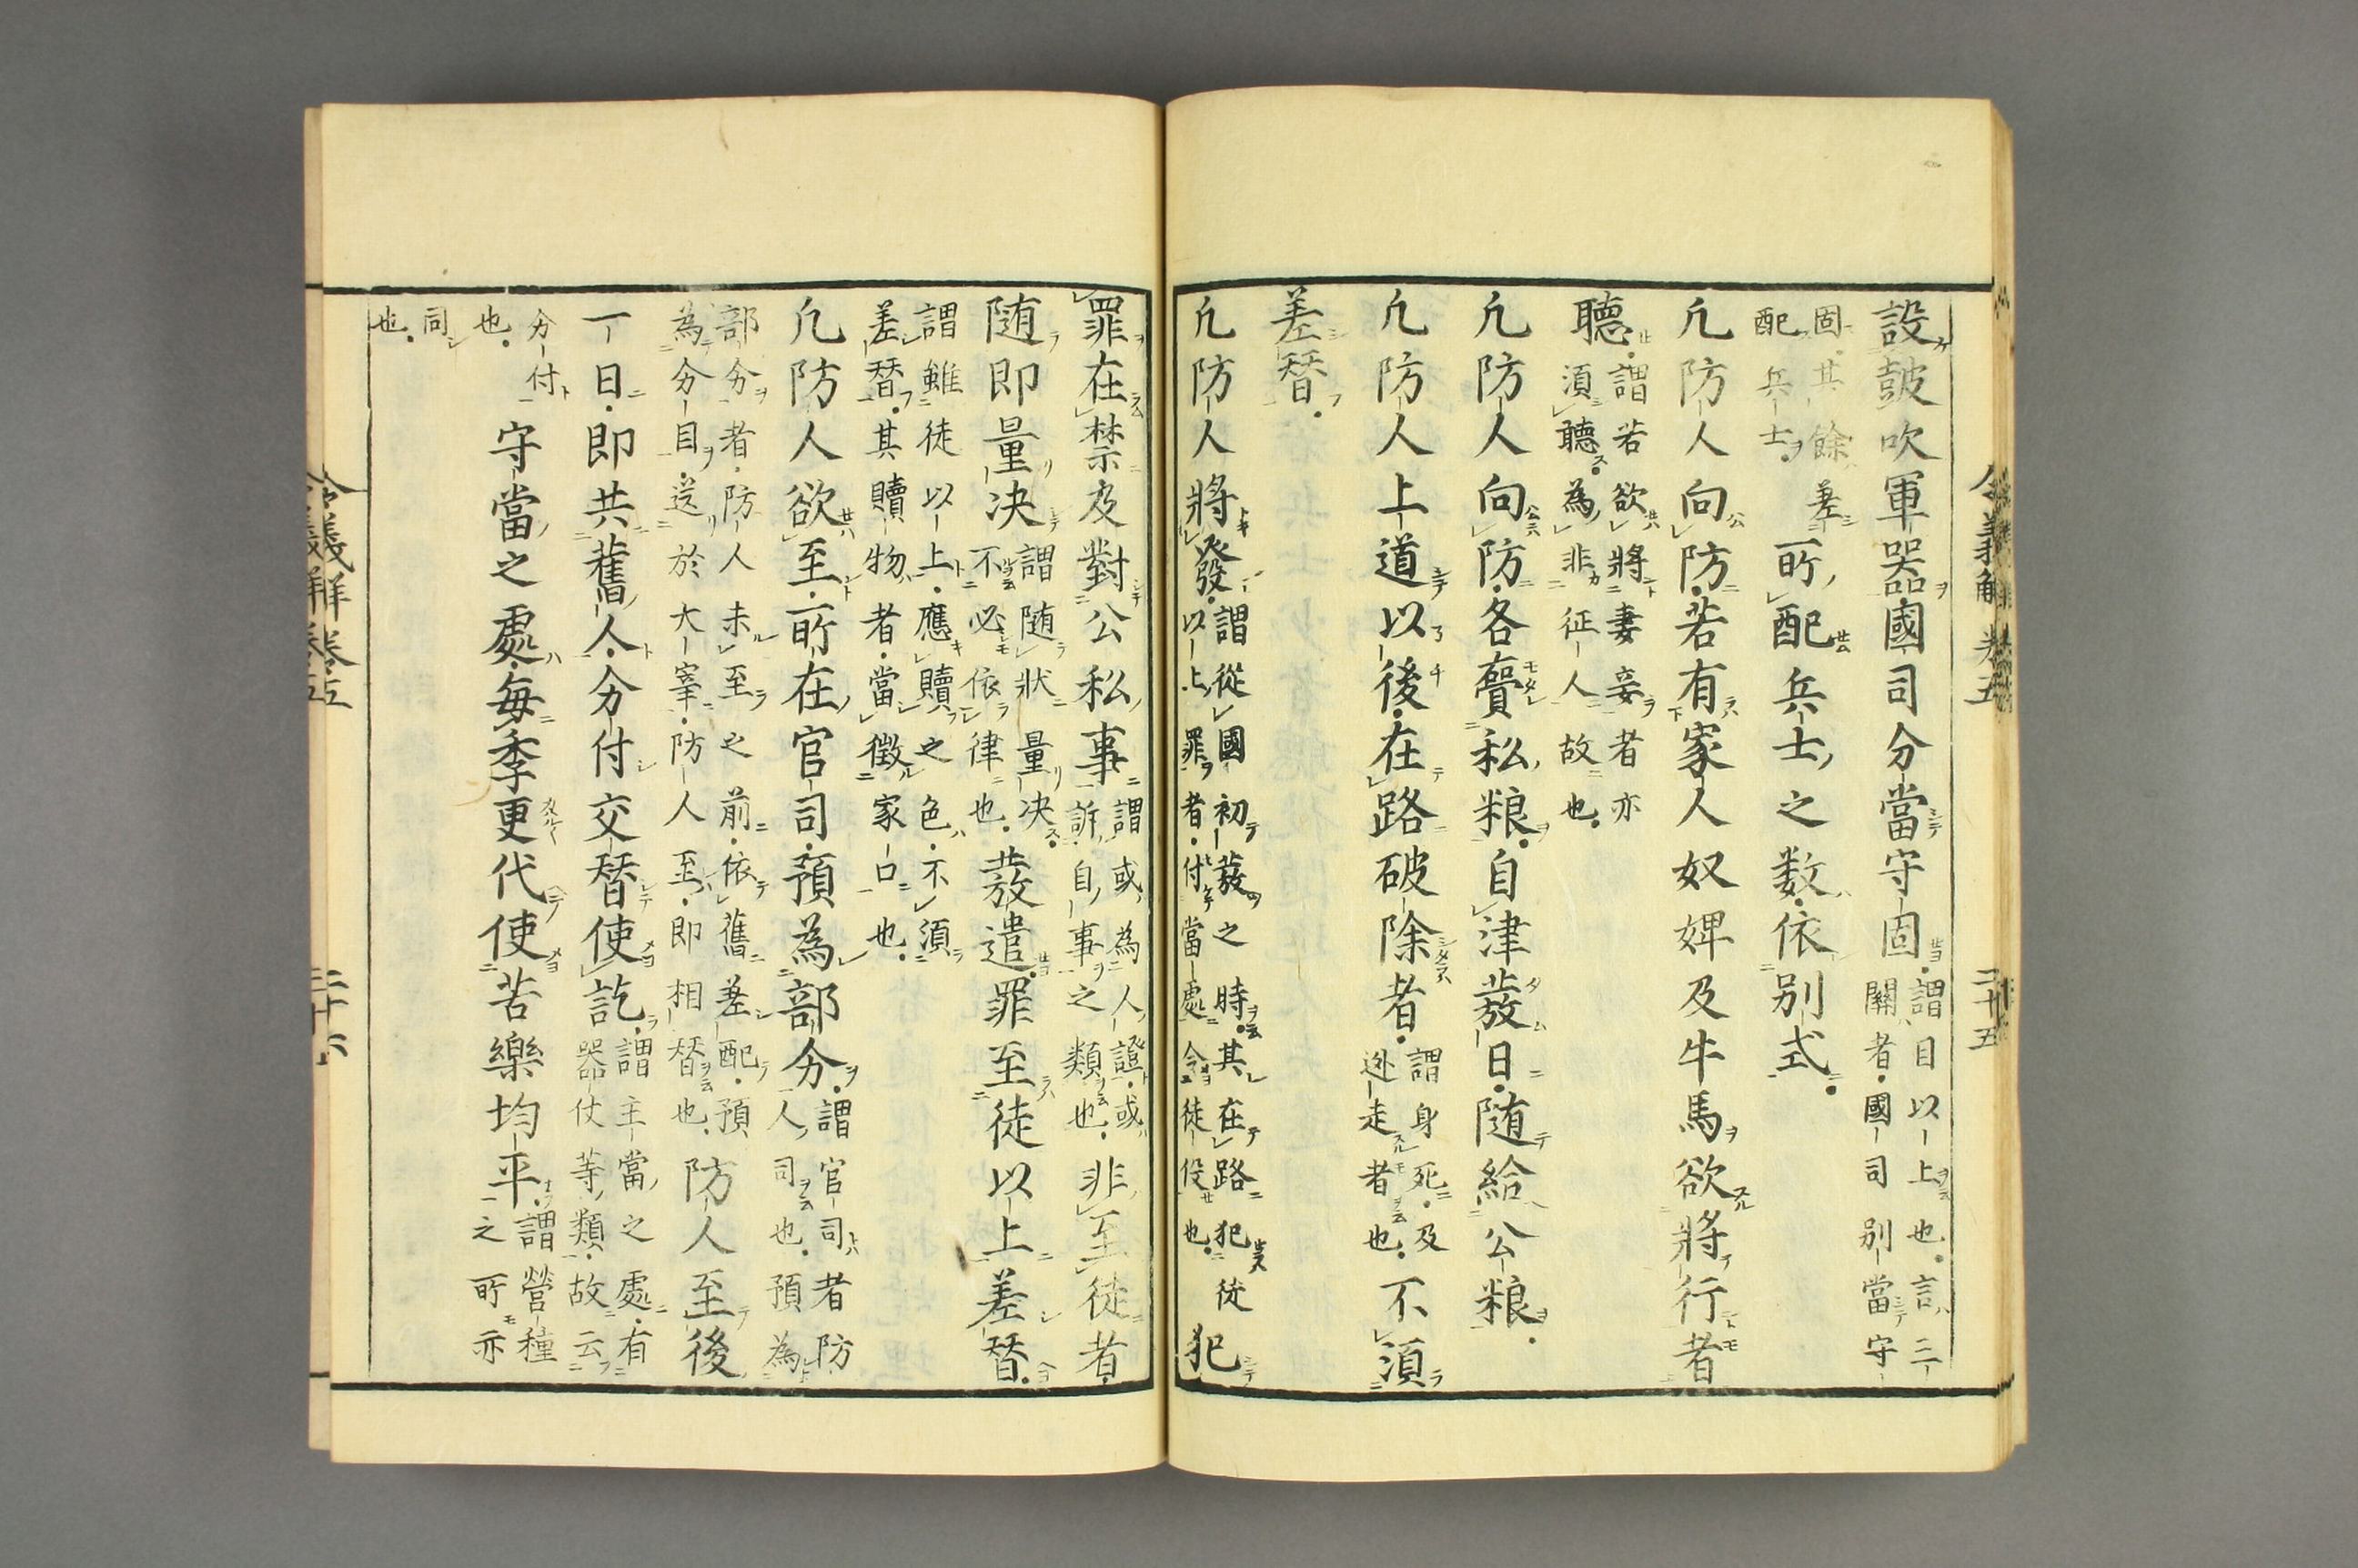 令義解 卷五 二十五
設鼓吹軍器國司分當守固謂目以上也言三
關者國司別當守
固其餘差
配兵士所配兵士之数依別式
凢防人向防若有家人奴婢及牛馬欲將行者
聴謂若欲將妻妾者亦
須聴為非征人故也
凢防人向防各賷私粮自津發日随給公粮
凢防人上道以後在路破除者謂身死及
迯走者也不須
差替
凢防人將發謂從國初發之時其在路犯徒
以上罪者付當處令徒役也犯
罪在禁及對公私事謂或為人證或
訴自事之類也非至徒者
随即量决謂随狀量决
不必依律也發遣罪至徒以上差替
謂雖徒以上應贖之色不須
差替其贖物者當徴家口也
凢防人欲至所在官司預為部分謂官司者防
人司也預為
部分者防人未至之前依舊差配預
為分目送於大宰防人至即相替也防人至後
一日即共舊人分付交替使訖謂主當之處有
器仗等類故云
分付
也守當之處每季更代使苦樂均平謂營種
之所亦
同
也
令義解卷五 二十六